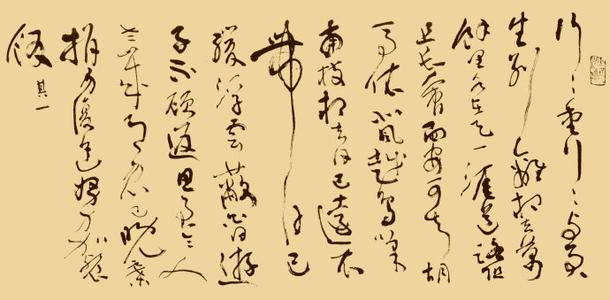 行〻重行〻與君
生別離相去萬
餘里各在天一涯道路阻
且長會面安可知胡
馬依北風越鳥巢
南枝相去日已遠衣
帶日已
緩浮雲蔽白日遊
子不顧返思君令人
老歲月忽已晚棄
捐勿復道努力加餐
飯 其一